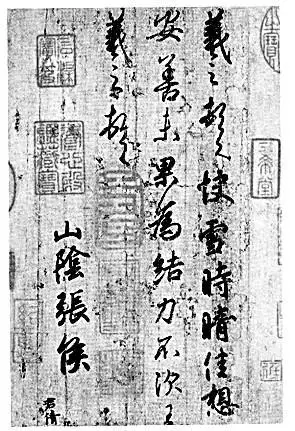 三希堂
羲之頓首快雪時晴佳想
安善未果為結力不次王
羲之頓首
山陰張侯
君倩